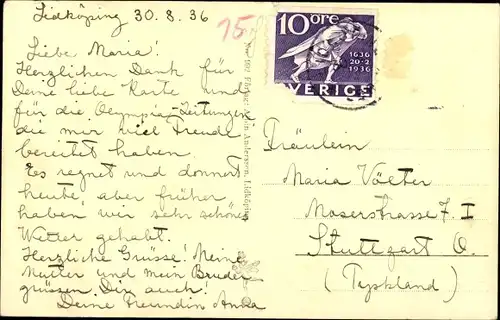 Lidköping 30.8.36
15
Liebe Maria!
Herzlichen Dank für
Deine liebe Karte und
für die Olympia-Zeitungen
die mir viel Freude
bereitet haben
Es regnet und donnert
heute, aber früher
haben wir sehr schönes
Wetter gehabt.
Herzliche Grüsse! Meine
Mutter und mein Bruder
grüssen Dir auch!
Deine Freundin Anna
10 öre
1636
20-2
1936
SVERIGE
Anderssen, Lidköping
Fräulein
Maria Völter
Moserstrasse 7. I
Stuttgart O.
(Tyskland)